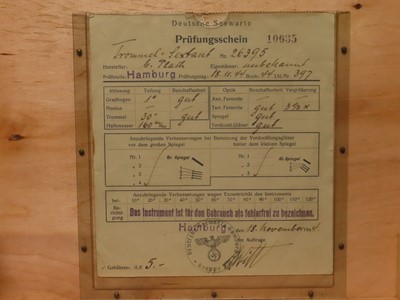 Deutsche Seewarte
Prüfungsschein 10635
Trommel-Sextant No 26395
Hersteller: C. Plath Eigentümer: unbekannt
Prüfstelle: Hamburg Prüfungstag: 18.11.44 Buch: 44 Lfd. Nr. 397
Ablesung Teilung Beschaffenheit Optik Beschaffenheit Vergrößerung
Gradbogen 1° gut Ast. Fernrohr
Nonius gut Terr. Fernrohr gut
Trommel 30" gut Spiegel gut
Halbmesser 160 mm Verdunkl.Gläser gut
Anzubringende Verbesserungen bei Benutzung der Verdunklungsgläser
vor dem großen Spiegel hinter dem kleinen Spiegel
Nr. 1 Gr. Spiegel Nr. 1 Kl. Spiegel
2 2
3 3
4
Anzubringende Verbesserungen wegen Exzentrizität des Instruments
bei: 10° 20° 30° 40° 50° 60° 70° 80° 90° 100° 110° 120°
Be-
richti-
gung Das Instrument ist für den Gebrauch als fehlerfrei zu bezeichnen.
Hamburg, den 18. November
Im Auftrage
Gebühren: RM 5.-